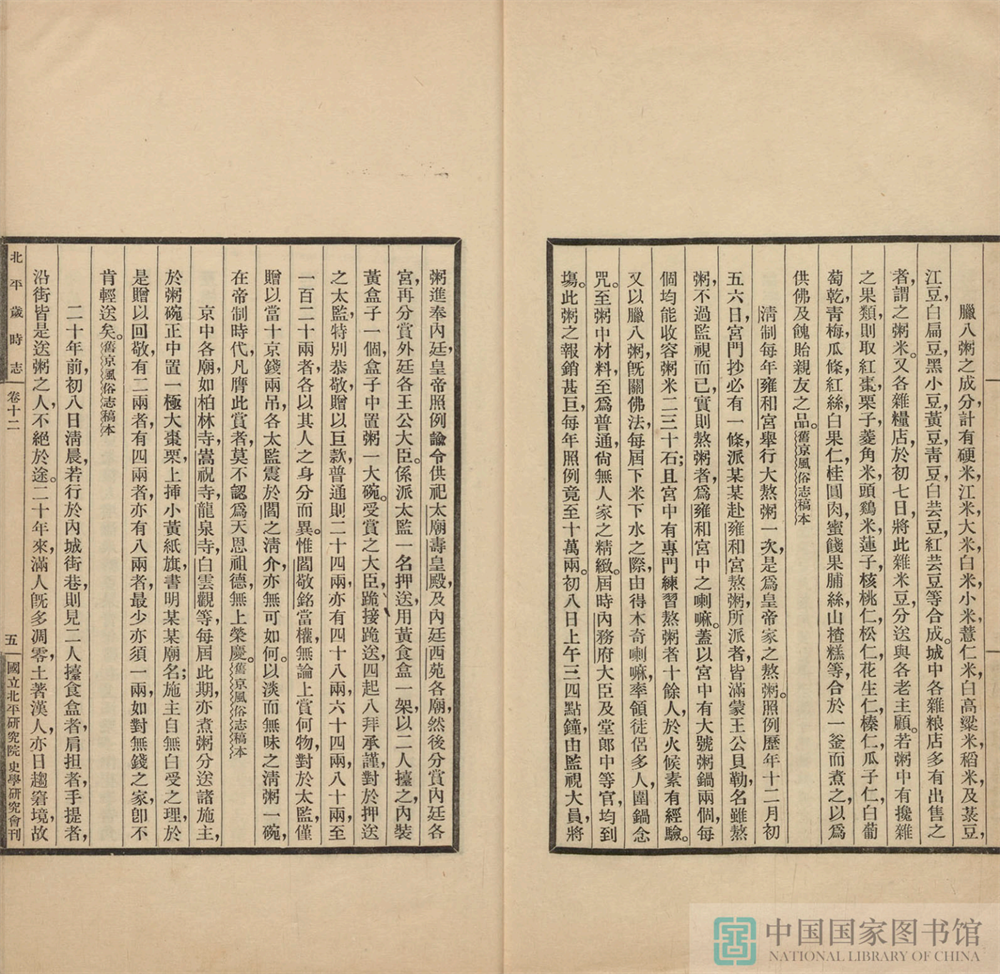 臘八粥之成分計有硬米江米大米白米小米薏仁米白高粱米稻米及菉豆，
江豆白扁豆黑小豆黃豆青豆白芸豆紅芸豆等合成。城中各雜粮店多有出售之
者，謂之粥米。又各雜糧店於初七日，將此雜米豆分送與各老主顧。若粥中有攙雜
之果類，則取紅棗栗子菱角米頭鷄米蓮子核桃仁松仁花生仁榛仁瓜子仁白葡
萄乾，青梅瓜條紅絲白果仁桂圓肉，蜜餞果脯絲山楂糕等，合於一釜而煮之，以爲
供佛及餽貽親友之品。舊京風俗志稿本
清制每年雍和宮舉行大熬粥一次，是爲皇帝家之熬粥。照例歷年十二月初
五六日，宮門抄必有一條，派某某赴雍和宮熬粥，所派者皆滿蒙王公貝勒，名雖熬
粥，不過監視而已，實則熬粥者，爲雍和宮中之喇嘛。蓋以宮中有大號粥鍋兩個，每
個均能收容粥米二三十石；且宮中有專門練習熬粥者十餘人，於火候素有經驗。
又以臘八粥既關佛法，每屆下米下水之際，由得木奇喇嘛，率領徒侶多人，圍鍋念
咒。至粥中材料，至爲普通，尙無人家之精緻。屆時內務府大臣及堂郎中等官，均到
塲。此粥之報銷甚巨，每年照例竟至十萬兩。初八日上午三四點鐘，由監視大員，將
粥進奉內廷，皇帝照例諭令供祀太廟壽皇殿，及內廷西苑各廟，然後分賞內廷各
宮，再分賞外廷各王公大臣。係派太監一名押送，用黃食盒一架，以二人擡之，內裝
黃盒子一個，盒子中置粥一大碗。受賞之大臣，跪接跪送，四起八拜，承謹對於押送
之太監，特別恭敬，贈以巨款，普通則二十四兩，亦有四十八兩，六十四兩，八十兩至
一百二十兩者，各以其人之身分而異。惟閻敬銘當權，無論上賞何物，對於太監，僅
贈以當十京錢兩吊，各太監震於閻之淸介，亦無可如何。以淡而無味之清粥一碗，
在帝制時代，凡膺此賞者，莫不認爲天恩祖德，無上榮慶。舊京風俗志稿本
京中各廟，如柏林寺，嵩祝寺，龍泉寺，白雲觀等，每屆此期，亦煮粥分送諸施主，
於粥碗正中置一極大棗栗，上揷小黃紙旗，書明某某廟名；施主自無白受之理，於
是贈以回敬，有二兩者，有四兩者，亦有八兩者，最少亦須一兩，如對無錢之家，卽不
肯輕送矣。舊京風俗志稿本
二十年前，初八日清晨，若行於內城街巷，則見二人擡食盒者，肩担者，手提者，
沿街皆是送粥之人，不絕於途。二十年來，滿人既多凋零，土著漢人，亦日趨窘境，故
北平歲時志
卷十二
五
國立北平硏究院 史學硏究會刊
中国国家图书馆
NATIONAL LIBRARY OF CHINA